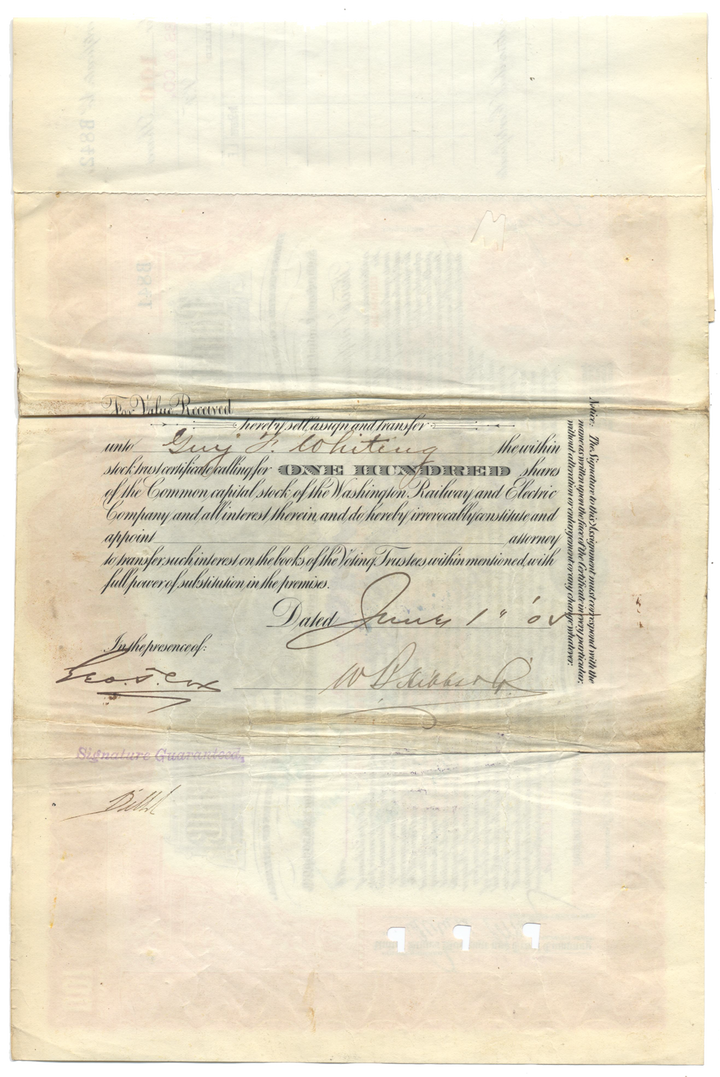 For Value Received
hereby sell, assign and transfer
unto Guy F. Whiting the within
stock trust certificate calling for ONE HUNDRED shares
of the Common capital stock of the Washington Railway and Electric
Company and all interest therein, and do hereby irrevocably constitute and
appoint attorney
to transfer such interest on the books of the Voting Trustees within mentioned, with
full power of substitution in the premises.
Dated June 1" '0
In the presence of:
Geo. T. Cox
W B Hibbs & Co
Signature Guaranteed,
Notice: The Signature to this Assignment must correspond with the
name as written upon the face of the Certificate in every particular,
without alteration or enlargement or any change whatever.